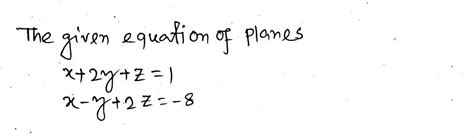 The given equation of planes
x+2y+z=1
x-y+2z=-8